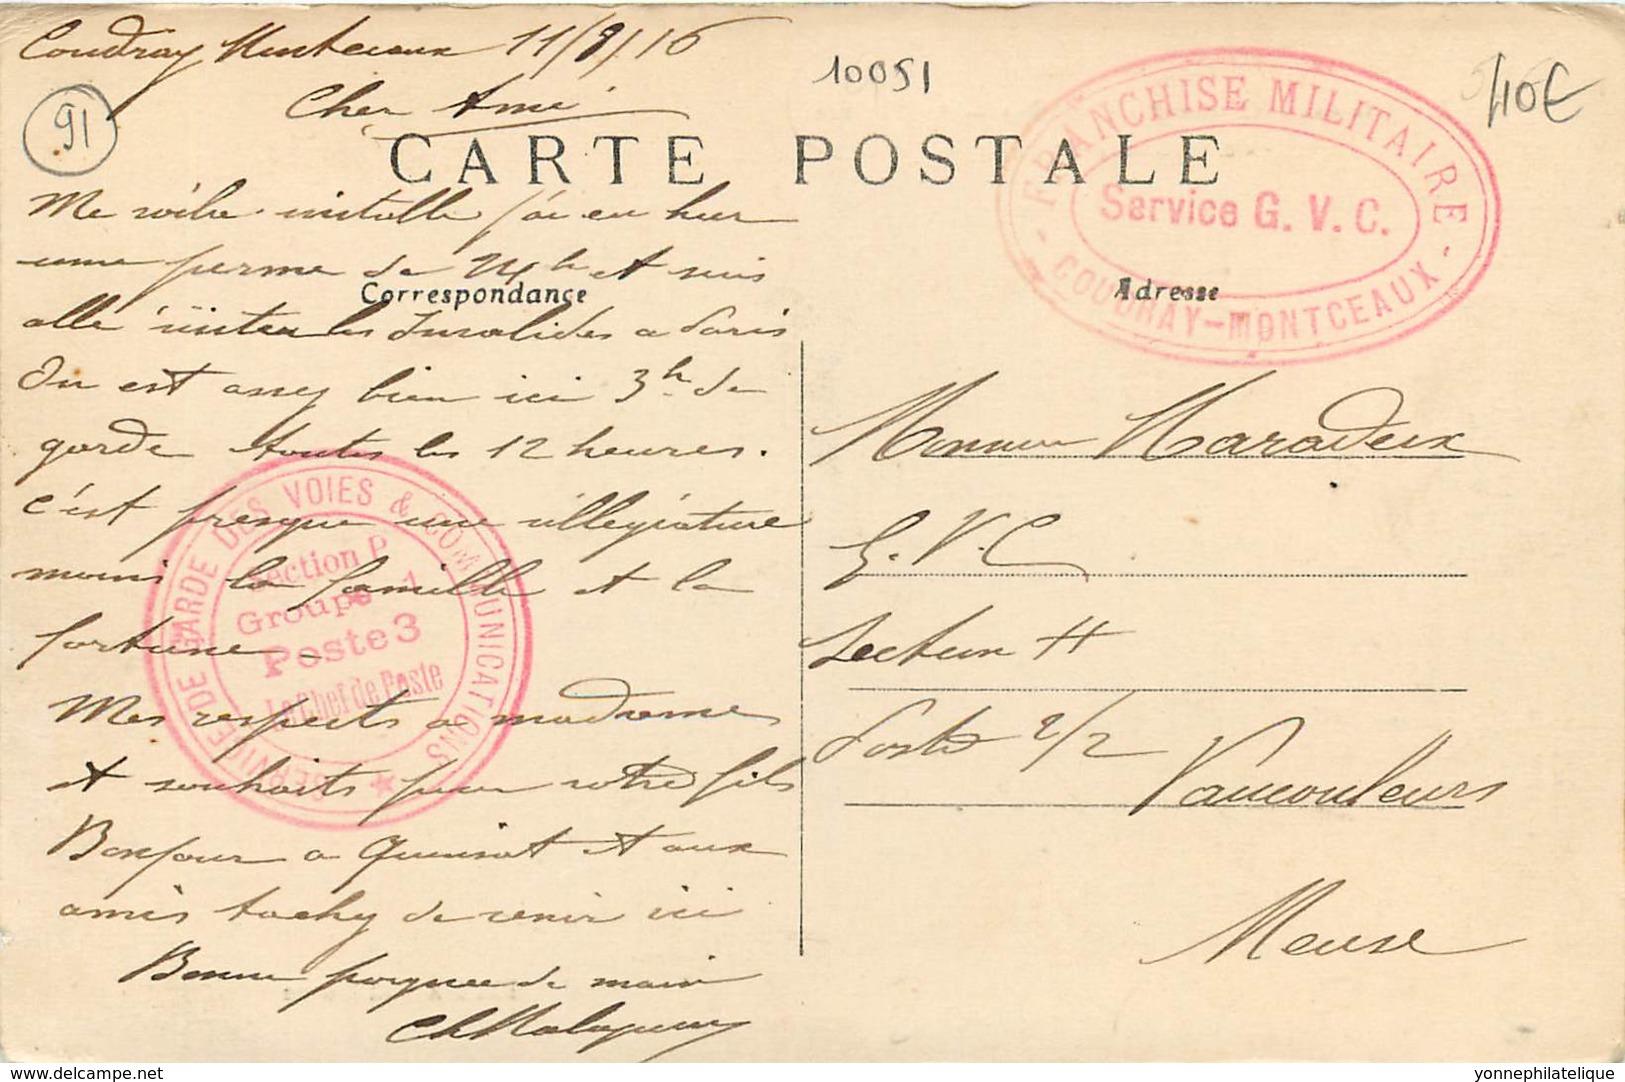 Coudray Montceaux 11/9/16
Cher Ami
10051
40€
91
CARTE POSTALE
FRANCHISE MILITAIRE
Service G. V. C.
- COUDRAY-MONTCEAUX -
Correspondance
Adresse
Me voila installé j'ai eu hier
une perme de 24h et suis
allé visiter les Invalides a Paris
On est assez bien ici 3h de
garde toutes les 12 heures.
c'est presque une villégiature
moins la famille et la
fortune.
Mes respects a madame
et souhaits pour votre fils
Bonjour a et aux
amis tachez de venir ici
Bonne poignee de main
SERVICE DE GARDE DES VOIES & COMMUNICATIONS
Section P
Groupe 1
Poste 3
Le Chef de Poste
Monsieur Maradeix
G. V. C
Secteur H
Poste 2/2
Vaucouleurs
Meuse
yonnephilatelique